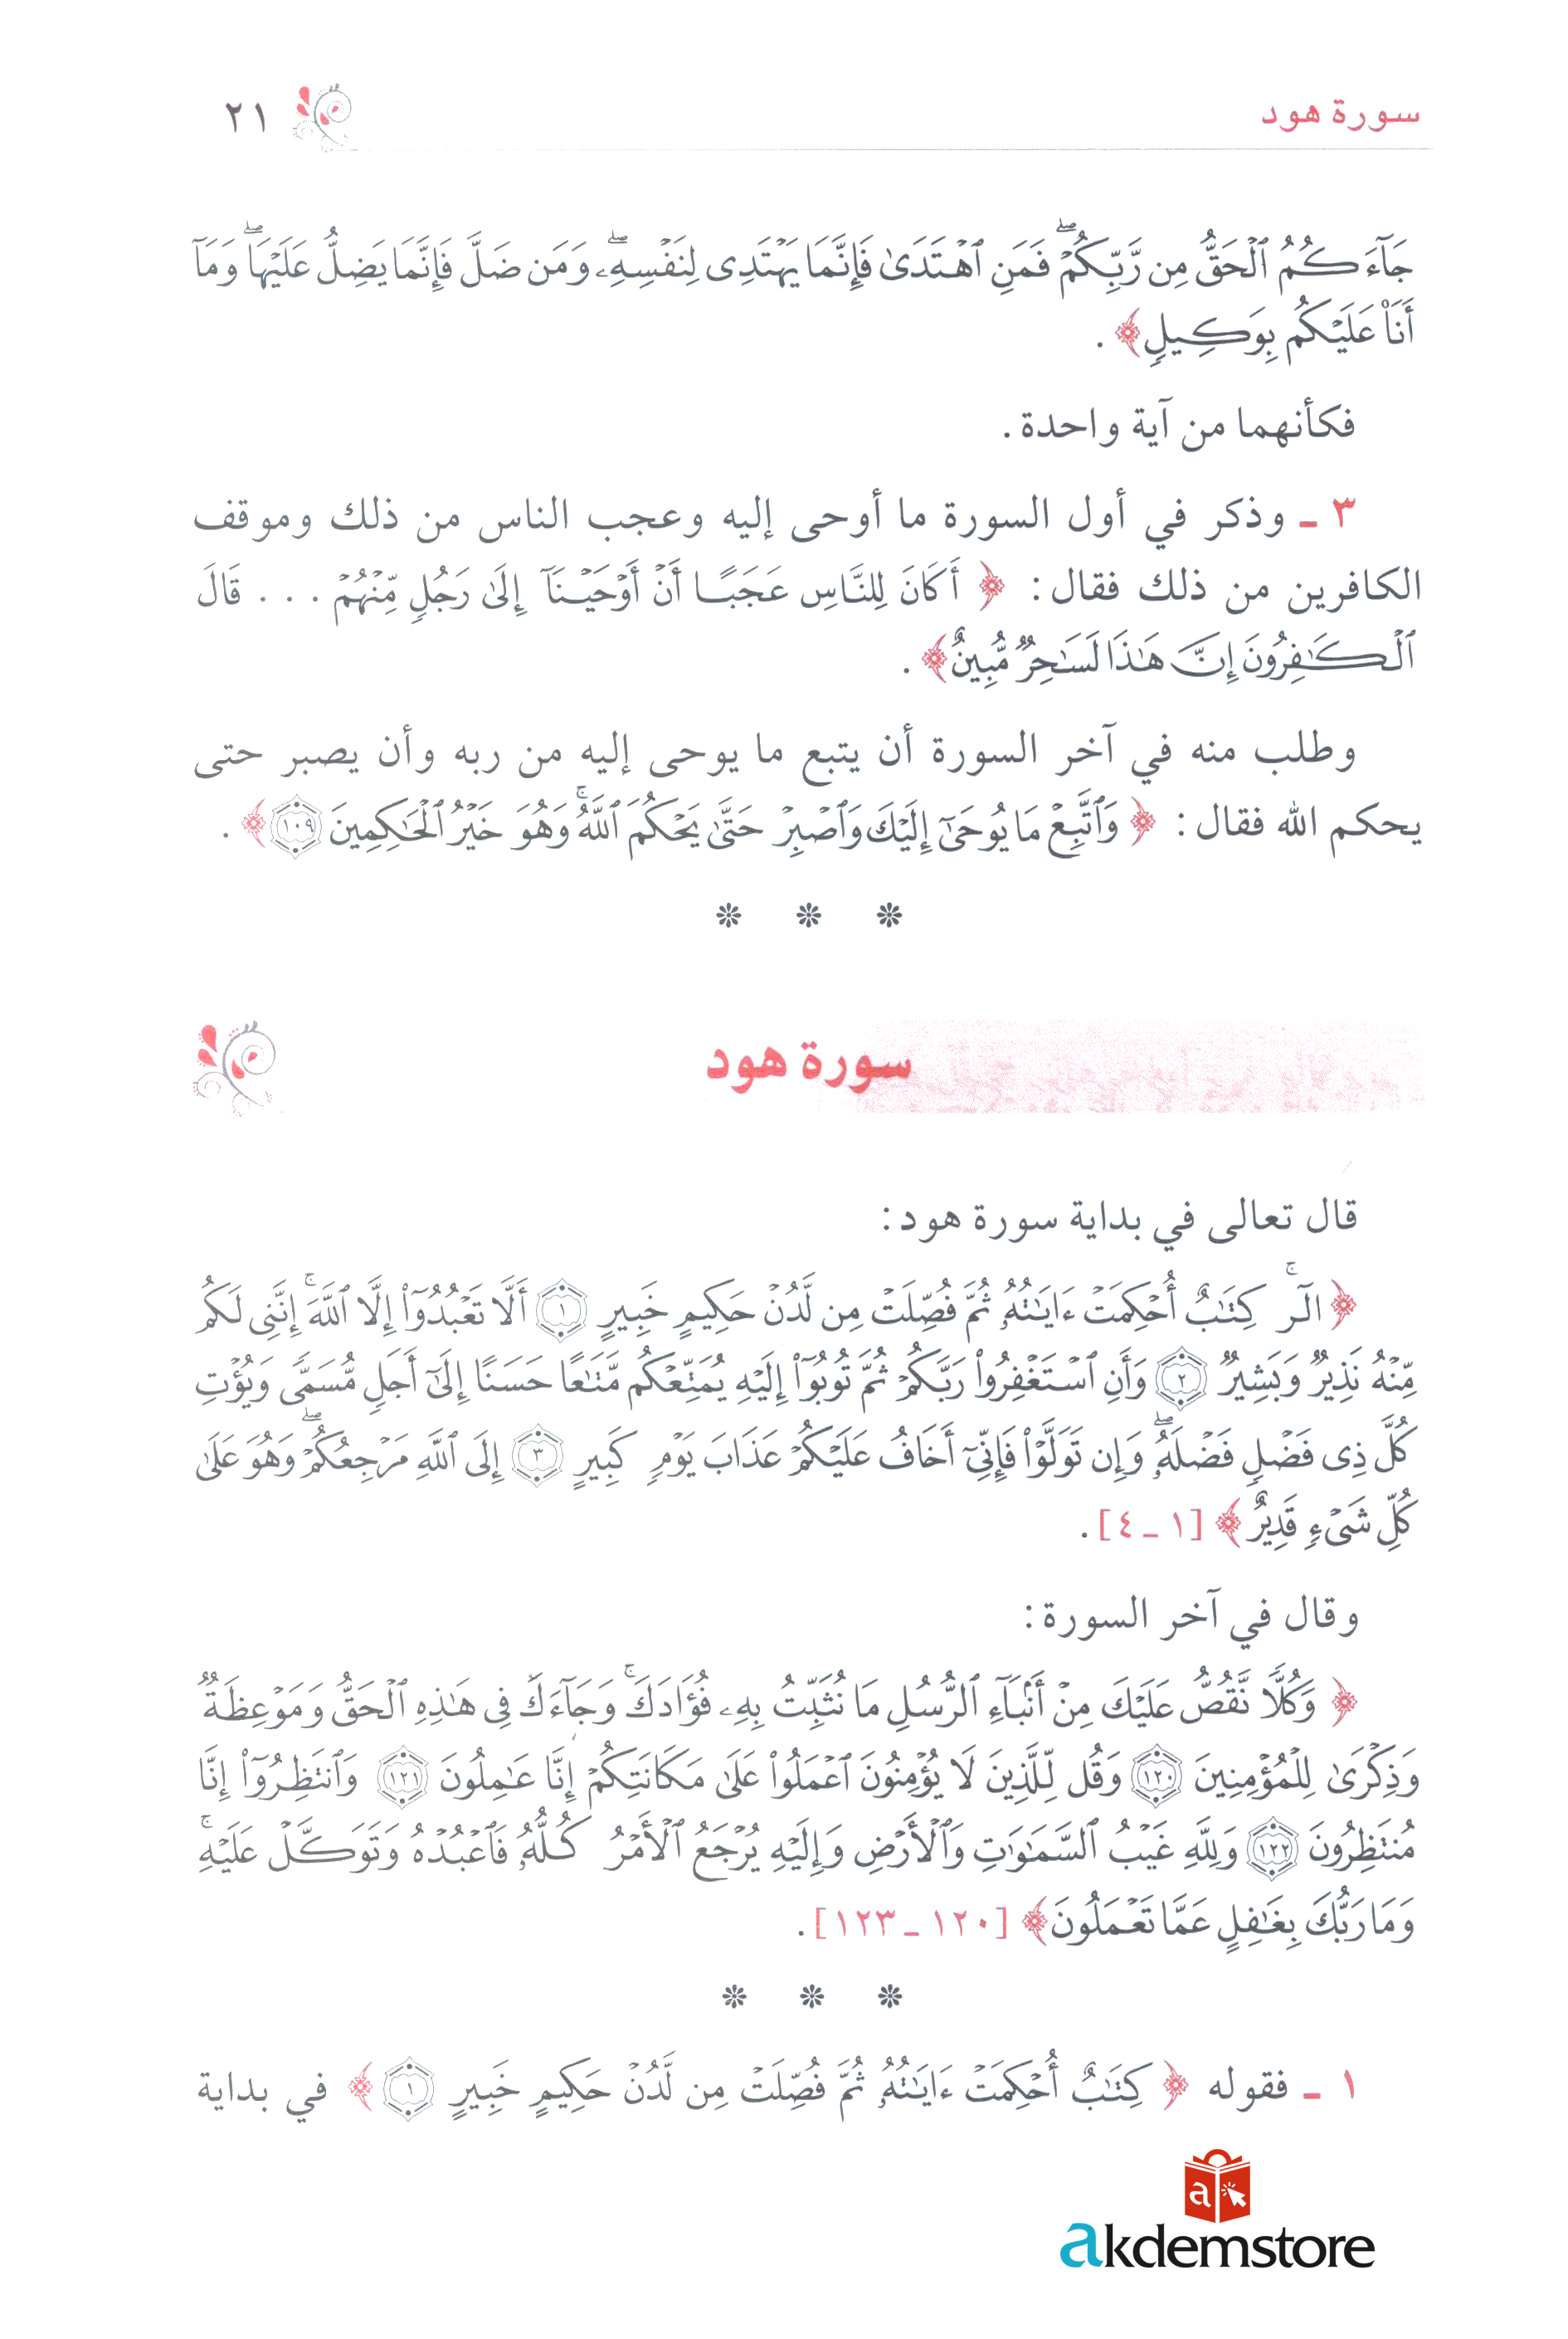 سورة هود ٢١
جَآءَكُمُ ٱلْحَقُّ مِن رَّبِّكُمْ ۖ فَمَنِ ٱهْتَدَىٰ فَإِنَّمَا يَهْتَدِى لِنَفْسِهِۦ ۖ وَمَن ضَلَّ فَإِنَّمَا يَضِلُّ عَلَيْهَا ۖ وَمَآ
أَنَا۠ عَلَيْكُم بِوَكِيلٍ﴾ .
فكأنهما من آية واحدة .
٣ ـ وذكر في أول السورة ما أوحى إليه وعجب الناس من ذلك وموقف
الكافرين من ذلك فقال : ﴿ أَكَانَ لِلنَّاسِ عَجَبًا أَنْ أَوْحَيْنَآ إِلَىٰ رَجُلٍ مِّنْهُمْ . . . قَالَ
ٱلْكَـٰفِرُونَ إِنَّ هَـٰذَا لَسَـٰحِرٌ مُّبِينٌ﴾ .
وطلب منه في آخر السورة أن يتبع ما يوحى إليه من ربه وأن يصبر حتى
يحكم الله فقال : ﴿ وَٱتَّبِعْ مَا يُوحَىٰٓ إِلَيْكَ وَٱصْبِرْ حَتَّىٰ يَحْكُمَ ٱللَّهُ ۚ وَهُوَ خَيْرُ ٱلْحَـٰكِمِينَ ١٠٩﴾ .
❊ ❊ ❊
سورة هود
قال تعالى في بداية سورة هود :
﴿ الٓر ۚ كِتَـٰبٌ أُحْكِمَتْ ءَايَـٰتُهُۥ ثُمَّ فُصِّلَتْ مِن لَّدُنْ حَكِيمٍ خَبِيرٍ ١ أَلَّا تَعْبُدُوٓا۟ إِلَّا ٱللَّهَ ۚ إِنَّنِى لَكُم
مِّنْهُ نَذِيرٌ وَبَشِيرٌ ٢ وَأَنِ ٱسْتَغْفِرُوا۟ رَبَّكُمْ ثُمَّ تُوبُوٓا۟ إِلَيْهِ يُمَتِّعْكُم مَّتَـٰعًا حَسَنًا إِلَىٰٓ أَجَلٍ مُّسَمًّى وَيُؤْتِ
كُلَّ ذِى فَضْلٍ فَضْلَهُۥ ۖ وَإِن تَوَلَّوْا۟ فَإِنِّىٓ أَخَافُ عَلَيْكُمْ عَذَابَ يَوْمٍ كَبِيرٍ ٣ إِلَى ٱللَّهِ مَرْجِعُكُمْ ۖ وَهُوَ عَلَىٰ
كُلِّ شَىْءٍ قَدِيرٌ﴾ [١ ـ ٤] .
وقال في آخر السورة :
﴿ وَكُلًّا نَّقُصُّ عَلَيْكَ مِنْ أَنۢبَآءِ ٱلرُّسُلِ مَا نُثَبِّتُ بِهِۦ فُؤَادَكَ ۚ وَجَآءَكَ فِى هَـٰذِهِ ٱلْحَقُّ وَمَوْعِظَةٌ
وَذِكْرَىٰ لِلْمُؤْمِنِينَ ١٢٠ وَقُل لِّلَّذِينَ لَا يُؤْمِنُونَ ٱعْمَلُوا۟ عَلَىٰ مَكَانَتِكُمْ إِنَّا عَـٰمِلُونَ ١٢١ وَٱنتَظِرُوٓا۟ إِنَّا
مُنتَظِرُونَ ١٢٢ وَلِلَّهِ غَيْبُ ٱلسَّمَـٰوَٰتِ وَٱلْأَرْضِ وَإِلَيْهِ يُرْجَعُ ٱلْأَمْرُ كُلُّهُۥ فَٱعْبُدْهُ وَتَوَكَّلْ عَلَيْهِ ۚ
وَمَا رَبُّكَ بِغَـٰفِلٍ عَمَّا تَعْمَلُونَ﴾ [١٢٠ ـ ١٢٣] .
❊ ❊ ❊
١ ـ فقوله ﴿ كِتَـٰبٌ أُحْكِمَتْ ءَايَـٰتُهُۥ ثُمَّ فُصِّلَتْ مِن لَّدُنْ حَكِيمٍ خَبِيرٍ ١ ﴾ في بداية
a
akdemstore